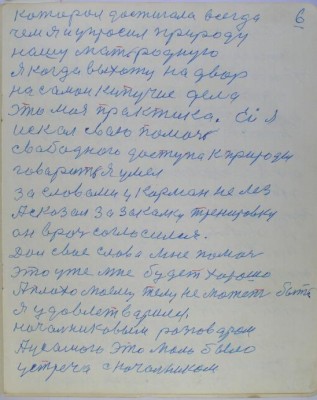 6
которая достигала всегда
чем я и упросил природу
нашу мать родную
Я когда выхожу на двор
на самом кипучие дела
это моя практика. Ей я
искал свою помочь
свободного доступа к природы
говорить я умел
За словами у карман не лез
А сказал за закалку тренировку
он врач согласился.
Дал свое слово мне помоч
Это уже мне будет хорошо
А плохо моему телу не может быть
Я удовлетварился
начальниковым разговаром
А у самого это моль было
устреча с начальником